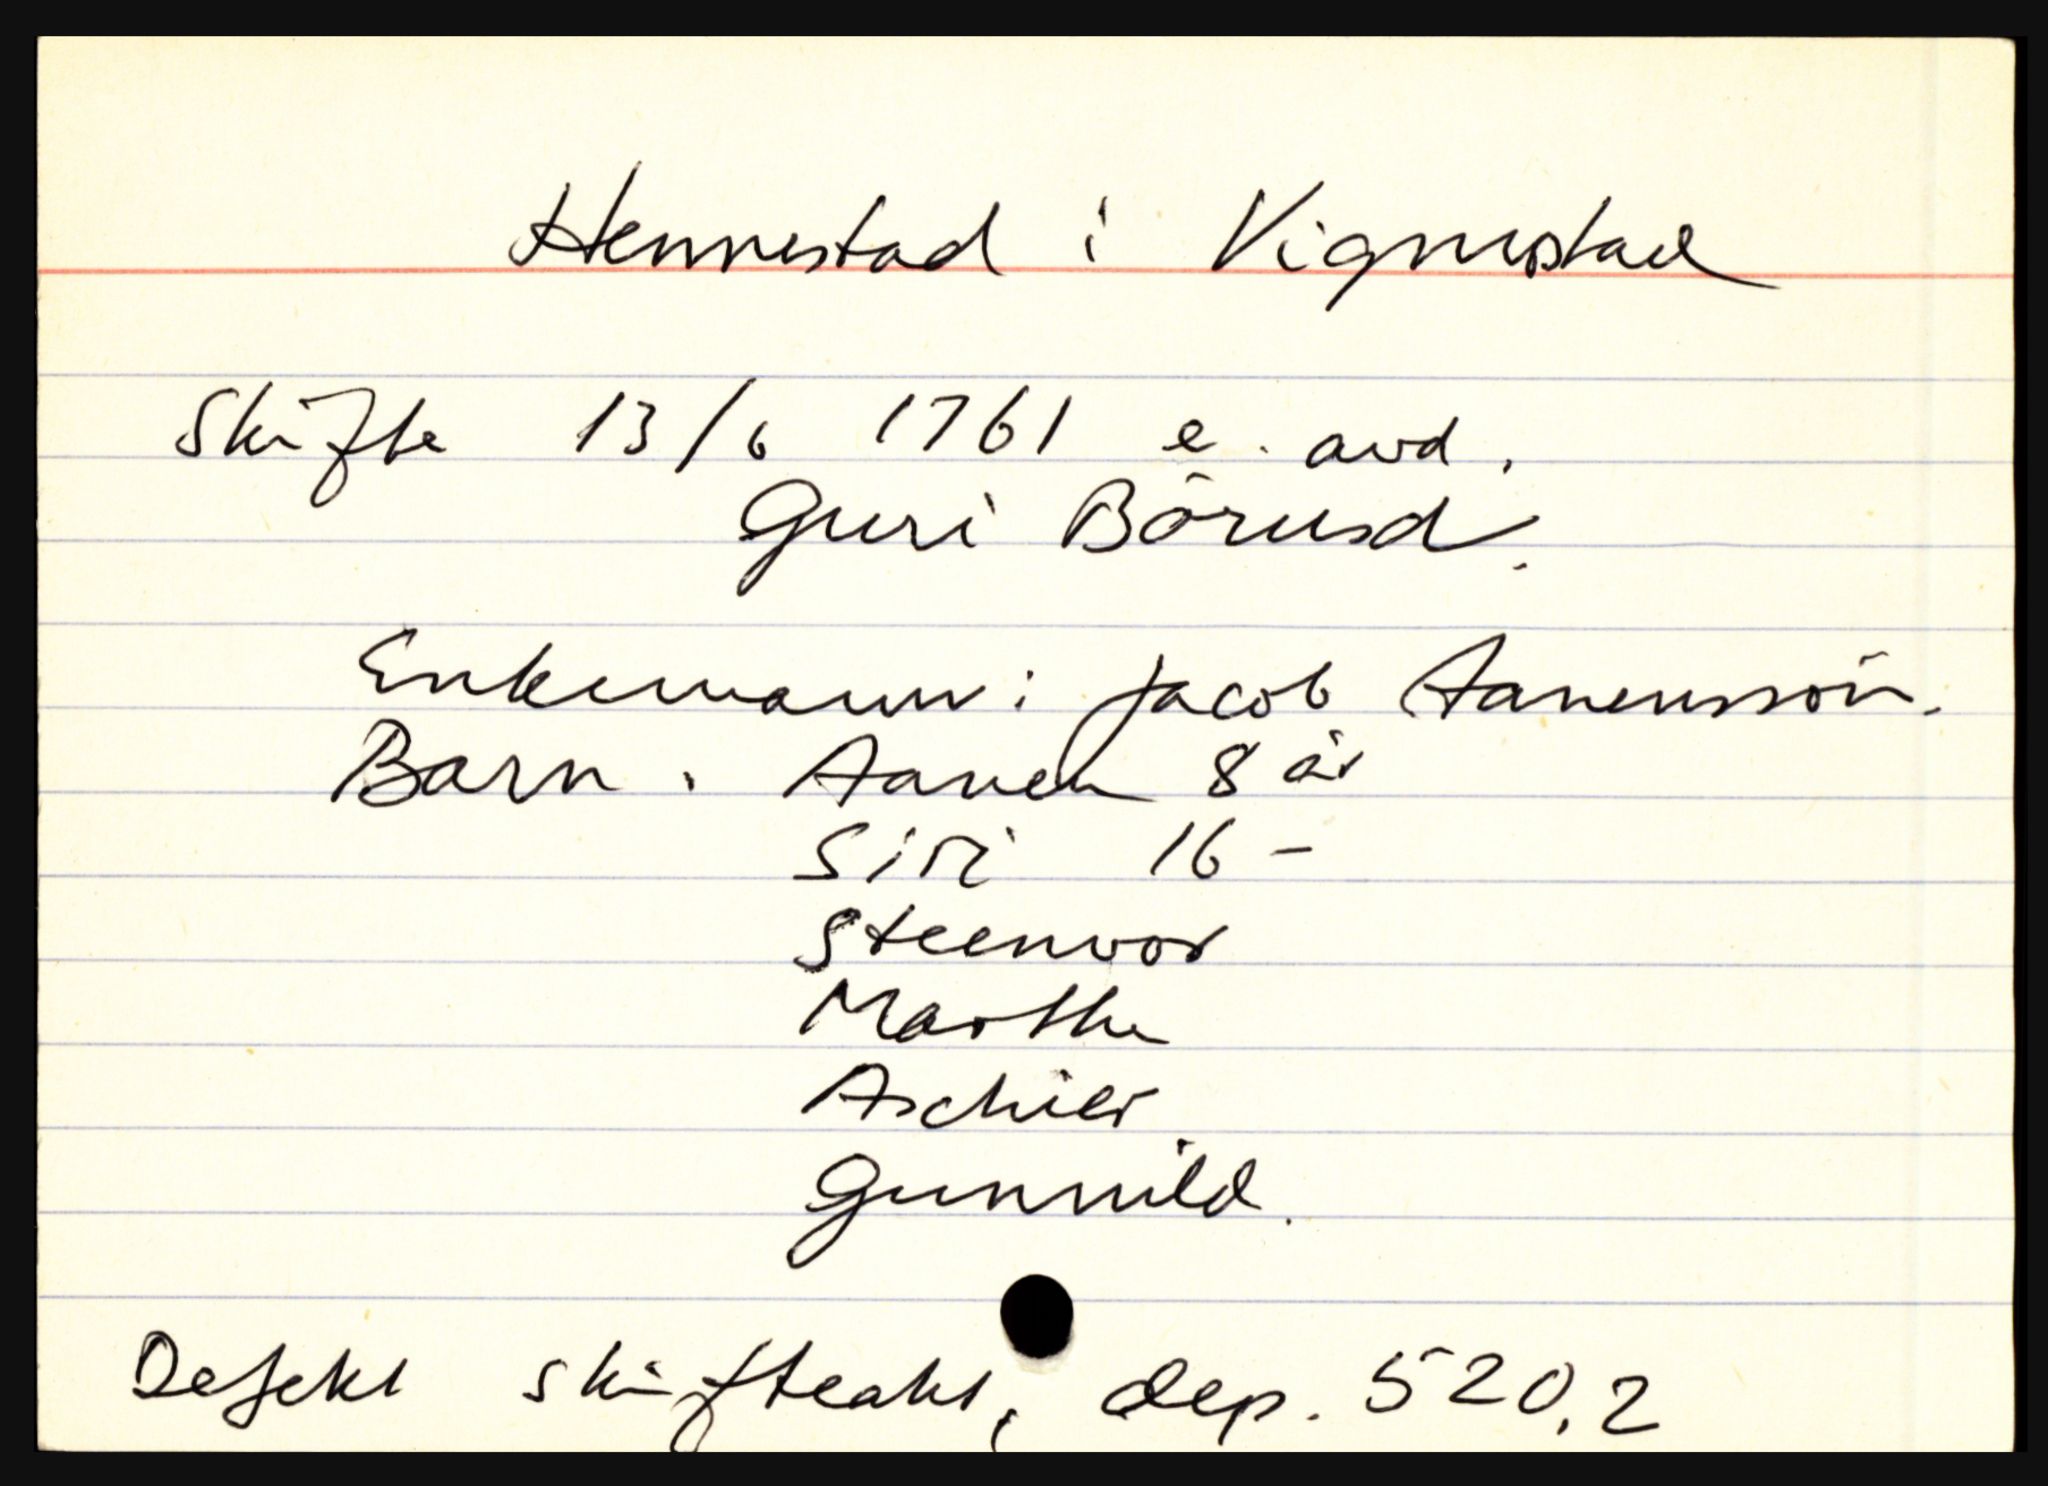 Hennestad i Vigmostad
Skifte 13/6 1761 e. avd.
Guri Börusd.
Enkemann: Jacob Aanenssön.
Barn: Aanen 8 år
Siri 16 -
Steenvor
Marthe
Aschier
Gunnild.
Defekt skifteakt, dep. 520,2